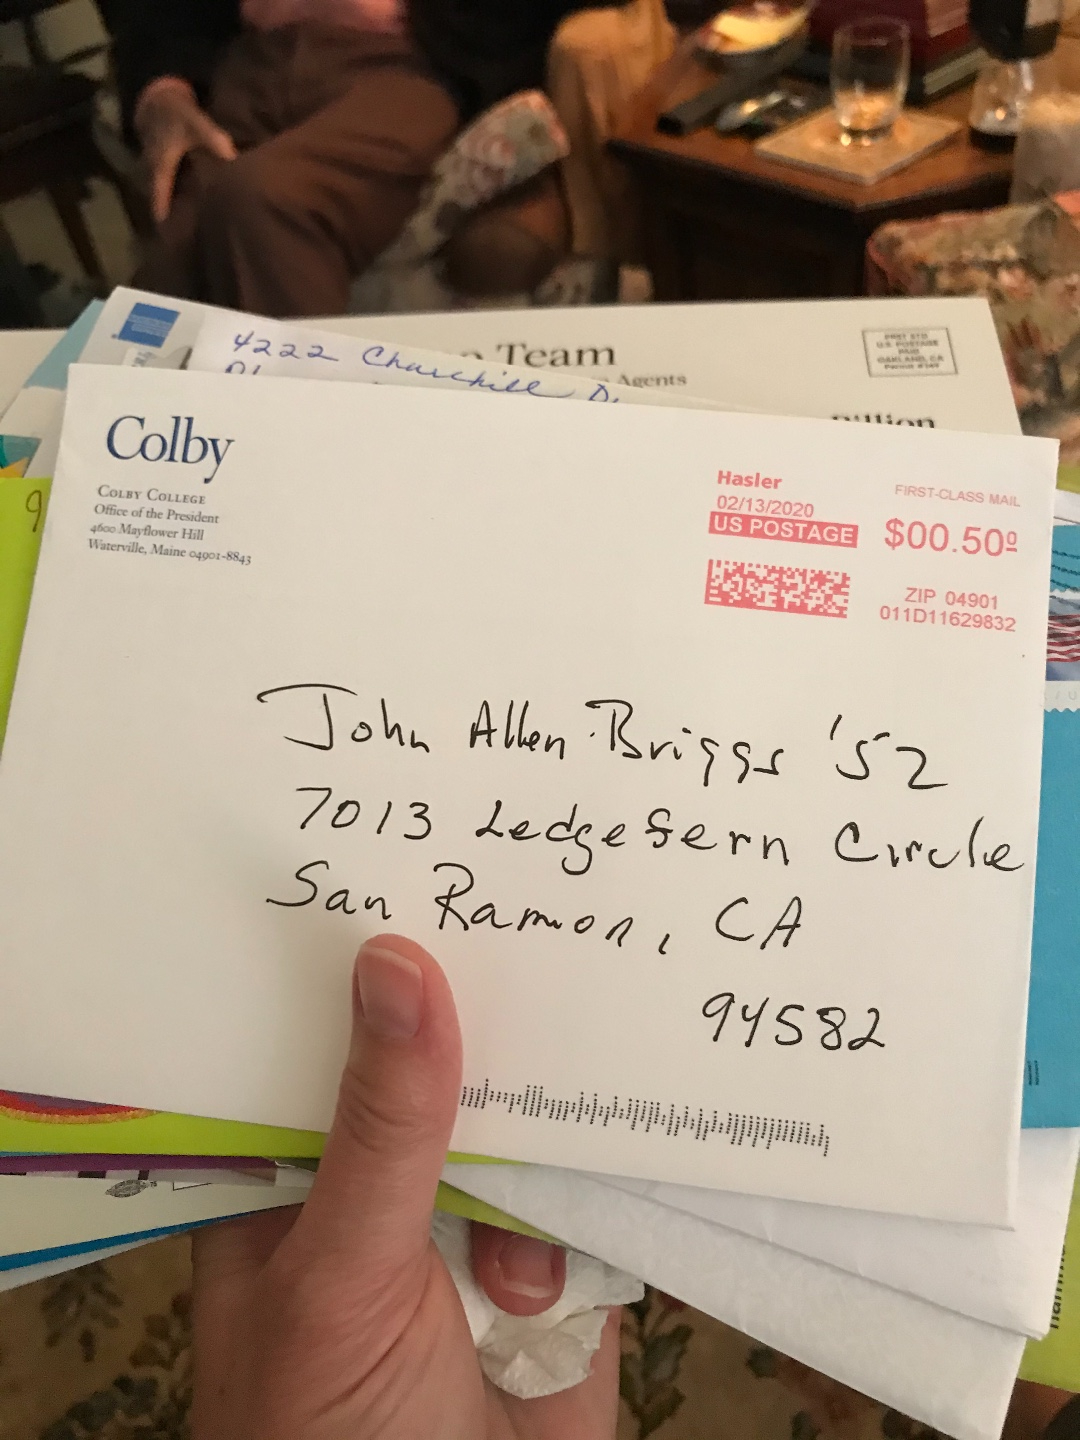 4222 Churchill
Team
Agents
FIRST STD
U.S. POSTAGE
PAID
OAKLAND, CA
Colby
COLBY COLLEGE
Office of the President
4600 Mayflower Hill
Waterville, Maine 04901-8843
Hasler
02/13/2020
US POSTAGE
FIRST-CLASS MAIL
$00.50⁰
ZIP 04901
011D11629832
John Allen Briggs '52
7013 Ledgefern Circle
San Ramon, CA
94582